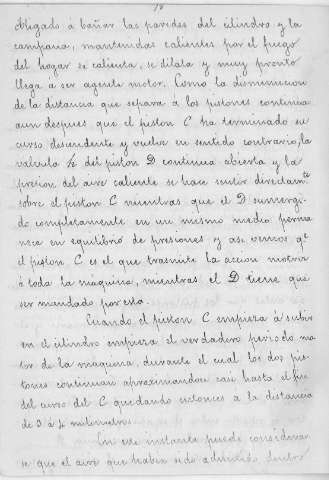 obligado á bañar las paredes del cilindro y la
campana, mantenidas calientes por el fuego
del hogar se calienta, se dilata y muy pronto
llega a ser agente motor. Como la disminucion
de la distancia que separa a los pistones continua
aun despues que el piston C ha terminado su
curso descendente y vuelve en sentido contrario, la
valvula h' del piston D continua abierta y la
presion del aire caliente se hace sentir directamte
sobre el piston C mientras que el D sumergi-
do completamente en un mismo medio perma
nece en equilibrio de presiones y asi vemos qe
el piston C es el que trasmite la accion motriz
á toda la máquina, mientras el D tiene que
ser mandado por esta.
Cuando el piston C empieza á subir
en el cilindro empieza el verdadero periodo mo
tor de la máquina, durante el cual los dos pis
tones continuan aproximandose casi hasta el fin
del curso del C quedando entonces a la distancia
de 3 á 4 milimetros.
En este instante puede considerar
se que el aire que habia sido admitido dentro